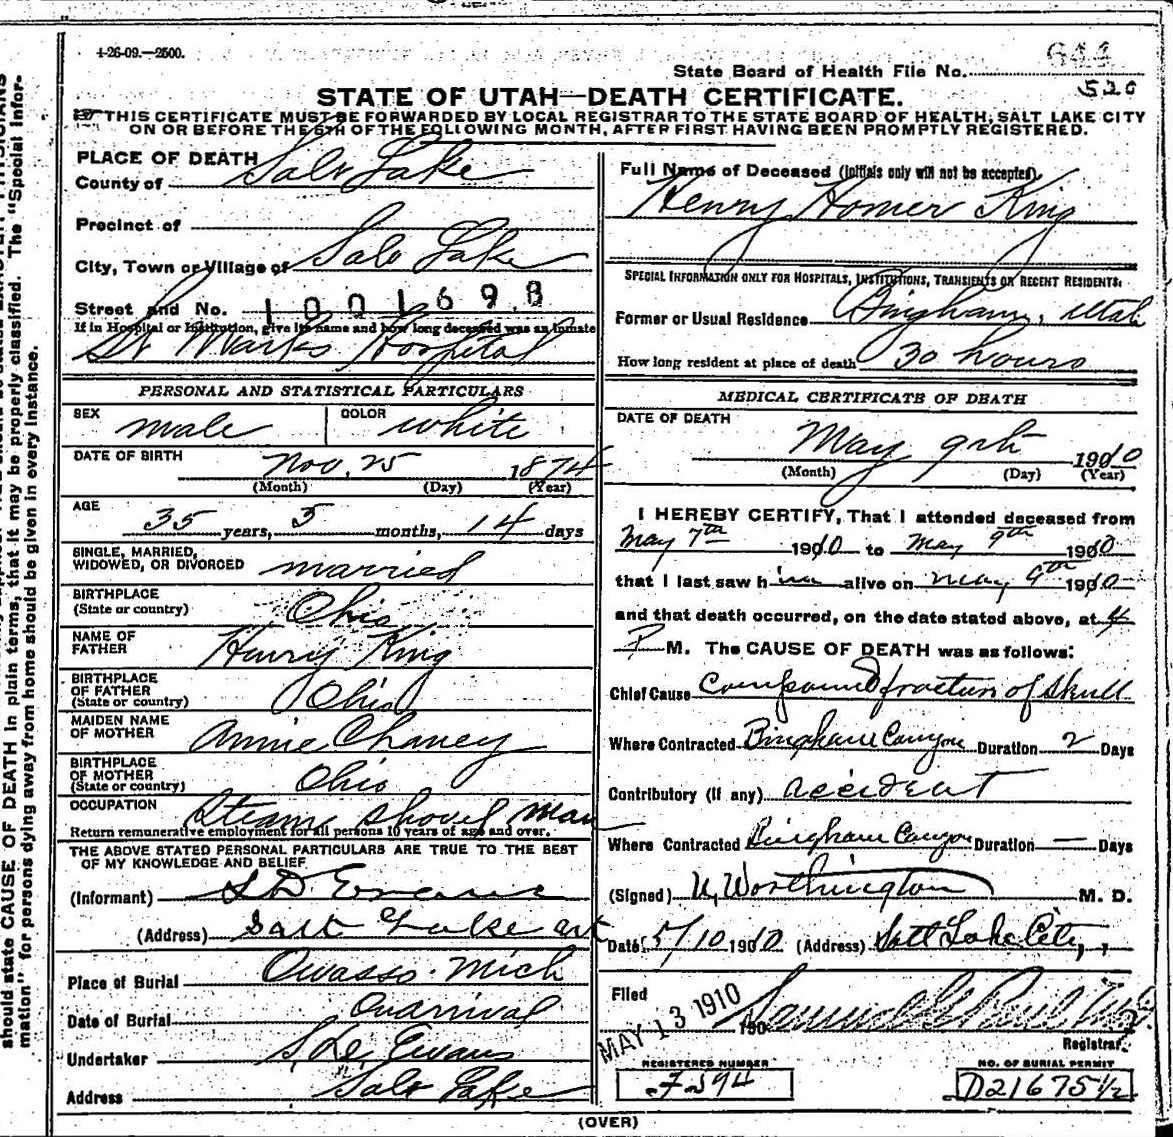 4-26-09.—2500.
644
State Board of Health File No.
520
STATE OF UTAH—DEATH CERTIFICATE.
THIS CERTIFICATE MUST BE FORWARDED BY LOCAL REGISTRAR TO THE STATE BOARD OF HEALTH, SALT LAKE CITY
ON OR BEFORE THE 5TH OF THE FOLLOWING MONTH, AFTER FIRST HAVING BEEN PROMPTLY REGISTERED.
PLACE OF DEATH
County of Salt Lake
Precinct of
City, Town or Village of Salt Lake
Street and No. 1001698
If in Hospital or Institution, give its name and how long deceased was an inmate
St Marks Hospital
PERSONAL AND STATISTICAL PARTICULARS
SEX male COLOR white
DATE OF BIRTH Nov, 25 1874
(Month) (Day) (Year)
AGE 35 years, 5 months, 14 days
SINGLE, MARRIED,
WIDOWED, OR DIVORCED married
BIRTHPLACE
(State or country) Ohio
NAME OF
FATHER Henry King
BIRTHPLACE
OF FATHER
(State or country) Ohio
MAIDEN NAME
OF MOTHER Annie Chaney
BIRTHPLACE
OF MOTHER
(State or country) Ohio
OCCUPATION Steam Shovel Man
Return remunerative employment for all persons 10 years of age and over.
THE ABOVE STATED PERSONAL PARTICULARS ARE TRUE TO THE BEST
OF MY KNOWLEDGE AND BELIEF
(Informant) S D Evans
(Address) Salt Lake
Place of Burial Owasso. Mich
Date of Burial On arrival
Undertaker S. D. Evans
Address Salt Lake
Full Name of Deceased (Initials only will not be accepted)
Henry Homer King
SPECIAL INFORMATION ONLY FOR HOSPITALS, INSTITUTIONS, TRANSIENTS OR RECENT RESIDENTS.
Former or Usual Residence Bingham, Utah
How long resident at place of death 30 hours
MEDICAL CERTIFICATE OF DEATH
DATE OF DEATH
May 9th 1910
(Month) (Day) (Year)
I HEREBY CERTIFY, That I attended deceased from
May 7th 1910 to May 9th 1910
that I last saw him alive on May 9th 1910
and that death occurred, on the date stated above, at 4
P M. The CAUSE OF DEATH was as follows:
Chief Cause Compound fracture of Skull
Where Contracted Bingham Canyon Duration 2 Days
Contributory (if any) accident
Where Contracted Bingham Canyon Duration — Days
(Signed) U, Worthington M. D.
Date 5/10 1910 (Address) Salt Lake City,
Filed MAY 13 1910 190
Registrar
REGISTERED NUMBER
F394
NO. OF BURIAL PERMIT
D21675 1/2
(OVER)
should state CAUSE OF DEATH in plain terms, that it may be properly classified. The "Special Infor-
mation" for persons dying away from home should be given in every instance.